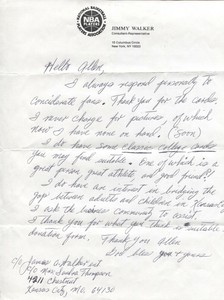 NATIONAL BASKETBALL
NBA
PLAYERS
JIMMY WALKER
Consultant Representative
15 Columbus Circle
New York, NY 10023
Hello Allen,
I always respond personally to
considerate fans. Thank you for the cards.
I never charge for pictures, of which
now I have none on hand. (Soon)
I do have some classic college cards
you may find suitable. One of which is a
good person great athlete and good friend!
I do have an interest in bridging the
gap between adults and children in
I ask the business community to assist.
I thank you for what you think is suitable
donation form.
Thank you, Allen
God bless you & yours
c/o James A. Walker est
c/o Mrs. Thompson
4211 Chestnut
Kansas City, Mo. 64130